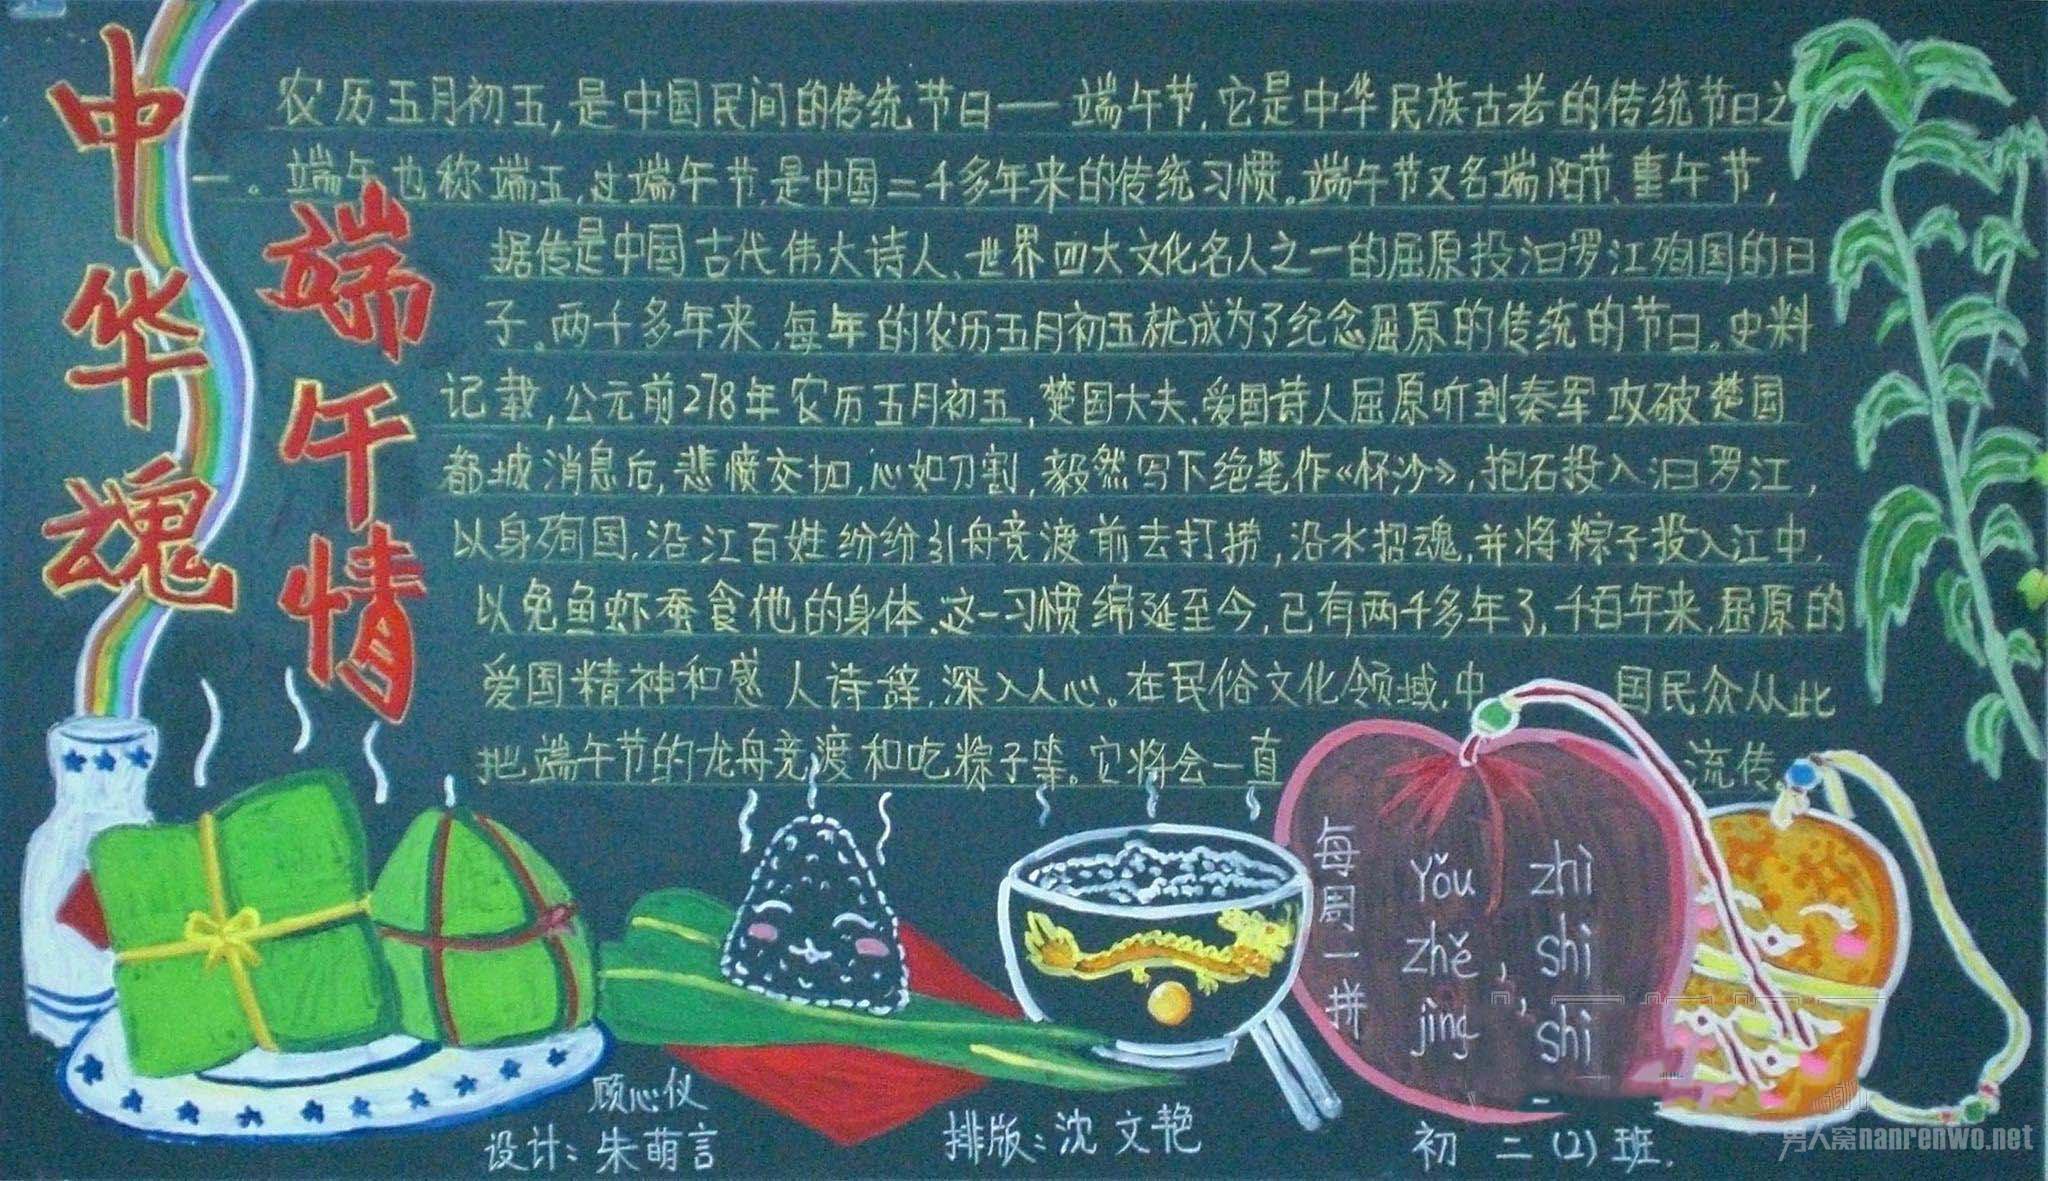 中华魂
端午情
农历五月初五,是中国民间的传统节日——端午节,它是中华民族古老的传统节日之
一。端午也称端五,过端午节,是中国二千多年来的传统习惯。端午节又名端阳节、重午节,
据传是中国古代伟大诗人、世界四大文化名人之一的屈原投汩罗江殉国的日
子。两千多年来,每年的农历五月初五就成为了纪念屈原的传统的节日。史料
记载,公元前278年农历五月初五,楚国大夫、爱国诗人屈原听到秦军攻破楚国
都城消息后,悲愤交加,心如刀割,毅然写下绝笔作《怀沙》,抱石投入汩罗江,
以身殉国.沿江百姓纷纷引舟竞渡前去打捞,沿水招魂,并将粽子投入江中,
以免鱼虾蚕食他的身体.这一习惯绵延至今,已有两千多年了,千百年来,屈原的
爱国精神和感人诗辞,深入人心。在民俗文化领域,中国民众从此
把端午节的龙舟竞渡和吃粽子等。它将会一直流传。
每周一拼
Yǒu zhì
zhě, shì
jìng, shì
顾心仪
设计:朱萌言
排版:沈文艳
初二(2)班.
男人窝nanrenwo.net